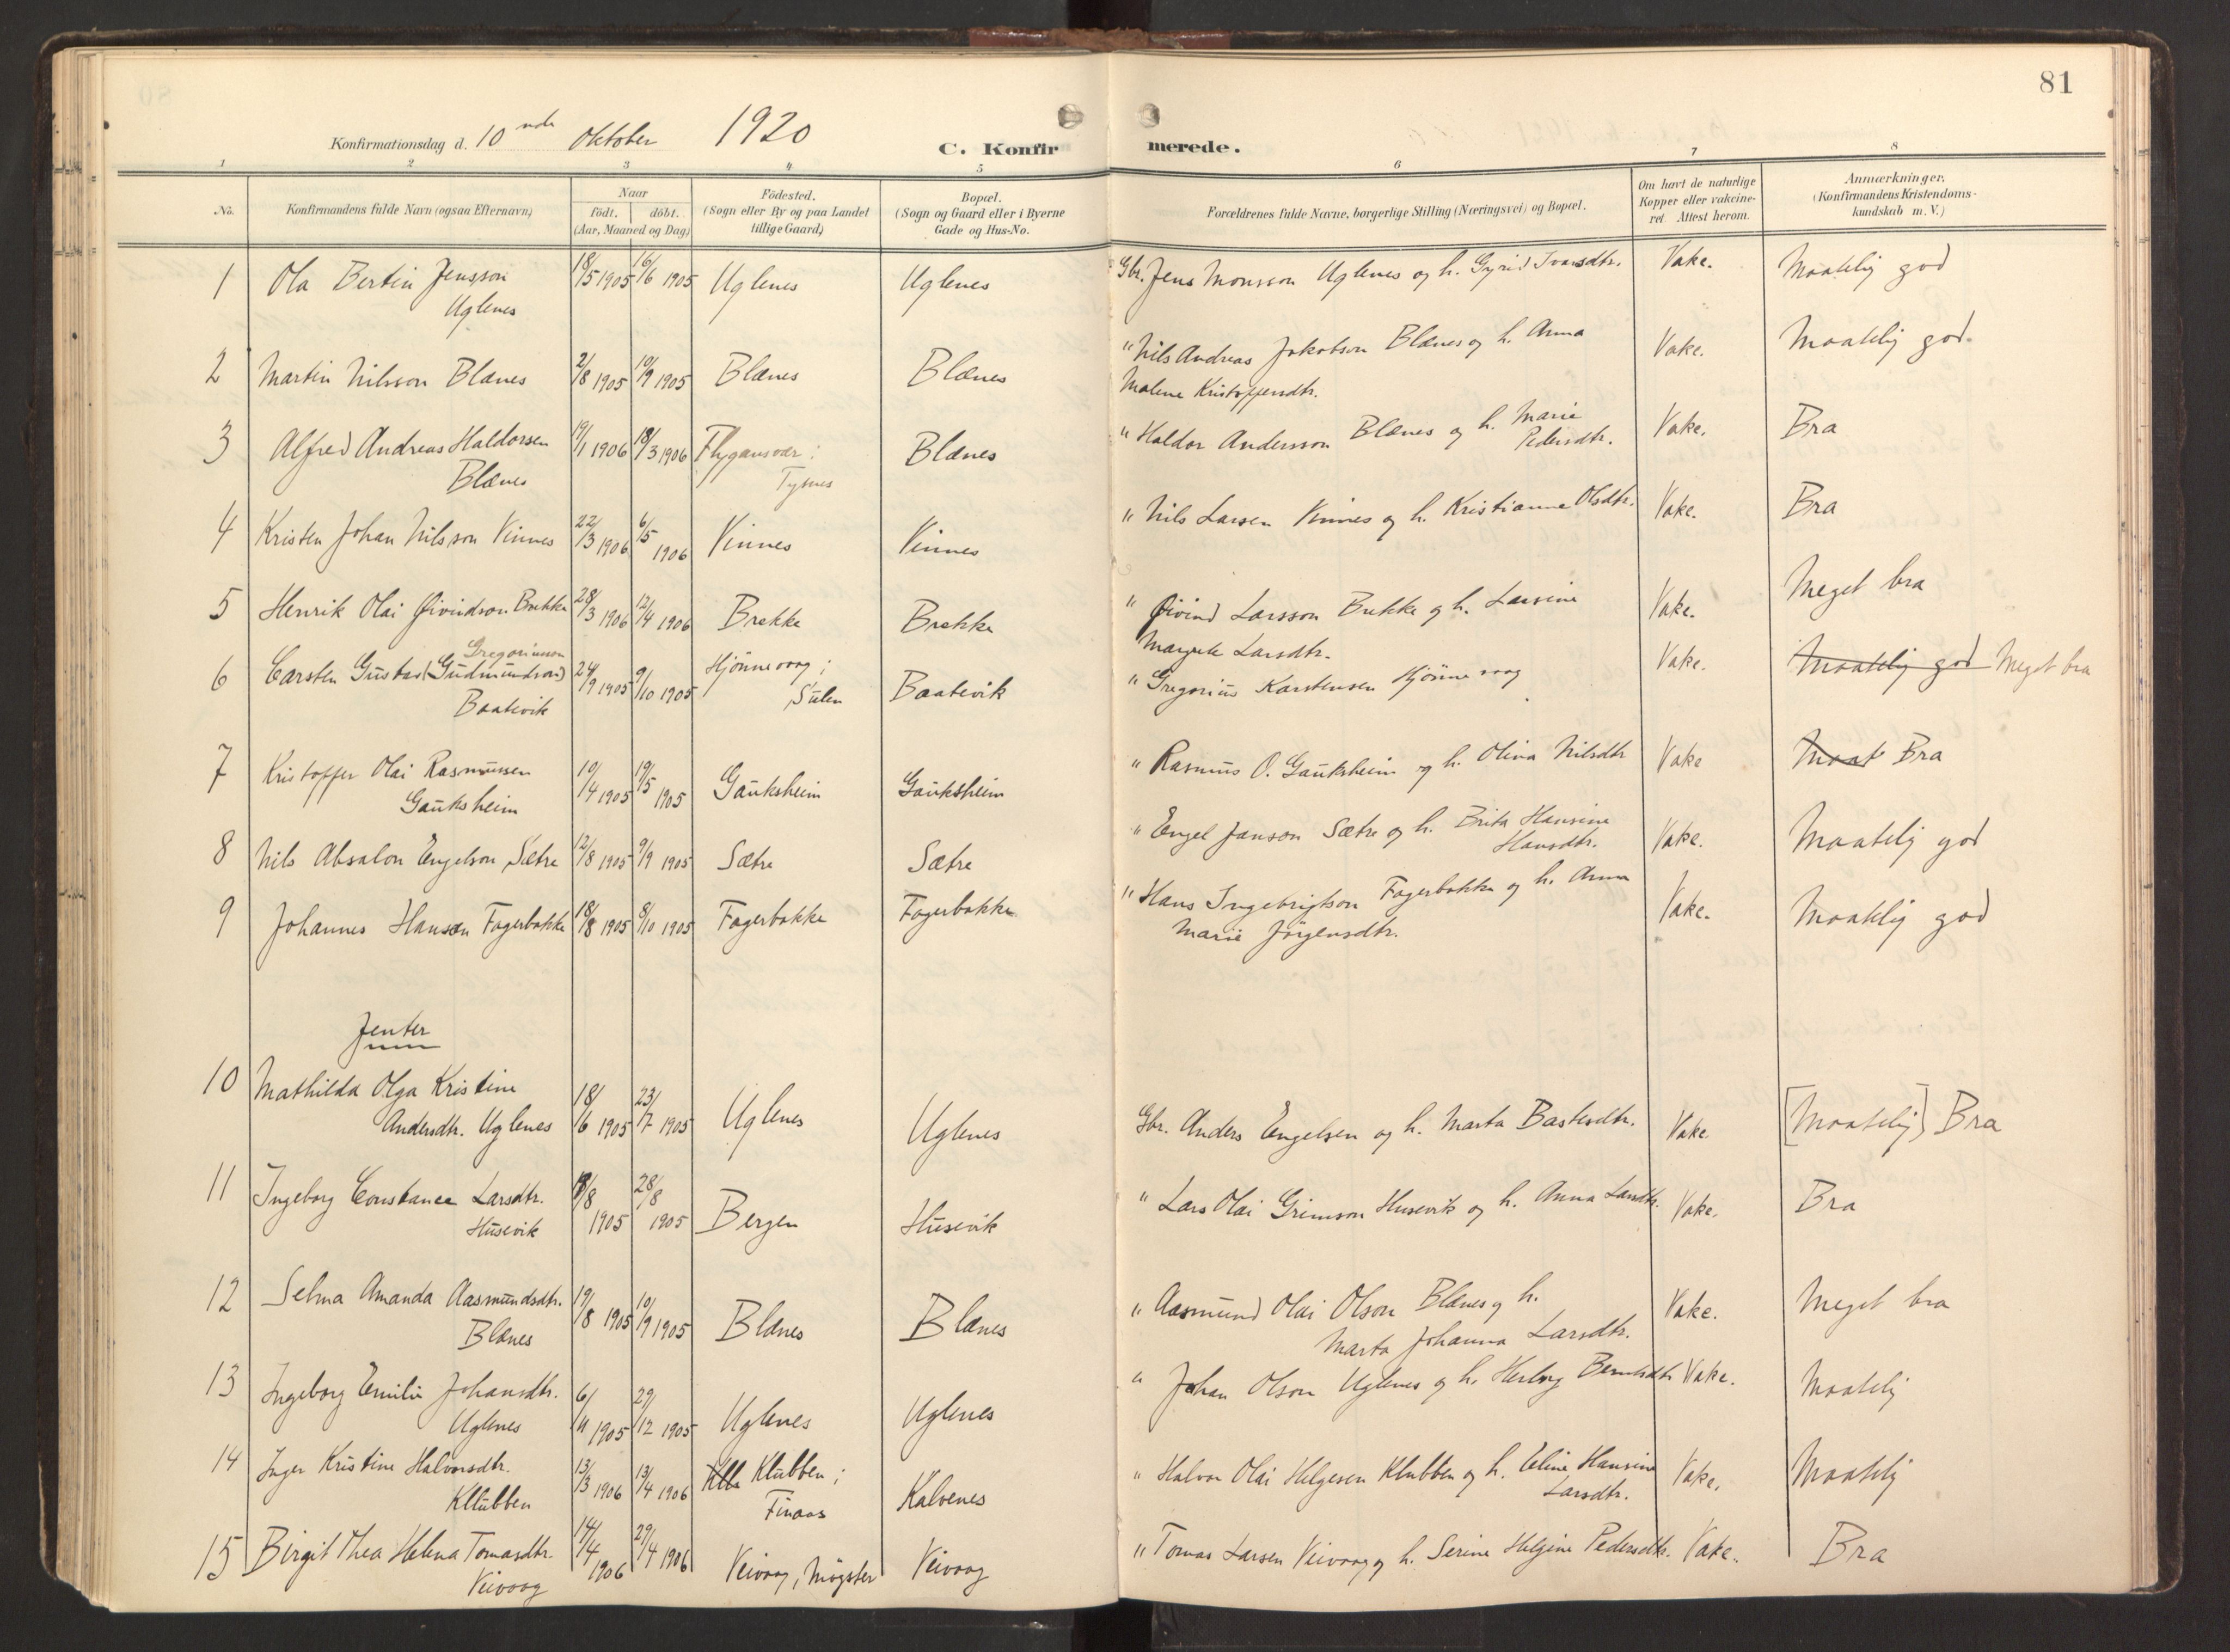 81
Konfirmationsdag d. 10 nde Oktober 1920
C. Konfirmerede.
1 2 3 4 5 6 7 8
No.
Konfirmandens fulde Navn (ogsaa Efternavn)
Naar
födt. döbt.
(Aar, Maaned og Dag)
Födested.
(Sogn eller By og paa Landet
tillige Gaard)
Bopæl.
(Sogn og Gaard eller i Byerne
Gade og Hus-No.
Forældrenes fulde Navne, borgerlige Stilling (Næringsvei) og Bopæl.
Om havt de naturlige
Kopper eller vakcine-
ret Attest herom.
Anmærkninger.
(Konfirmandens Kristendoms-
kundskab m. V.)
1 Ola Bertin Jensson 18/5 1905 16/6 1905 Uglenes Uglenes Gbr. Jens Monsson Uglenes og h. Gyrid Ivarsdtr. Vakc. Maatelig god
Uglenes
2 Martin Nilsson Blænes 2/8 1905 10/9 1905 Blænes Blænes " Nils Andreas Jakobson Blænes og h. Anna Vakc. Maatelig god.
Malene Kristoffersdtr.
3 Alfred Andreas Haldorsen 19/1 1906 18/3 1906 Flygansvær; Blænes " Haldor Andersson Blænes og h. Marie Vakc. Bra
Blænes Tysnes Pedersdtr.
4 Kristen Johan Nilsson Vinnes 22/3 1906 6/5 1906 Vinnes Vinnes " Nils Larsen Vinnes og h. Kristianne Olsdtr. Vakc. Bra
5 Henrik Olai Øivindson Brekke 28/3 1906 12/4 1906 Brekke Brekke " Øivind Larsson Brekke og h. Larsine Vakc. Meget bra
Margrete Larsdtr.
Gregoriusson
6 Carsten Gustav (Gudmundson) 24/9 1905 9/10 1905 Hjönnevaag; Baatevik " Gregorius Karstensen Hjönnevaag Vakc. Maatelig god Meget bra
Baatevik Sulen
7 Kristoffer Olai Rasmussen 10/4 1905 19/5 1905 Gauksheim Gauksheim " Rasmus O. Gauksheim og h. Olina Nilsdtr Vakc Maat Bra
Gauksheim
8 Nils Absalon Engelson Sætre 12/8 1905 9/9 1905 Sætre Sætre " Engel Janson Sætre og h. Brita Hansine Vakc. Maatelig god
Hansdtr.
9 Johannes Hansen Fagerbakke 18/8 1905 8/10 1905 Fagerbakke Fagerbakke " Hans Ingebrigtson Fagerbakke og h. Anna Vakc. Maatelig god
Marie Jörgensdtr.
Jenter
10 Mathilda Olga Kristine
Andersdtr. Uglenes 18/6 1905 23/7 1905 Uglenes Uglenes Gbr. Anders Engelsen og h. Marta Bastesdtr. Vakc. [Maatelig] Bra
11 Ingeborg Constance Larsdtr. /8 1905 28/8 1905 Bergen Husevik " Lars Olai Grimson Husevik og h. Anna Larsdtr. Vakc. Bra
Husevik
12 Selma Amanda Aasmundsdtr. 19/8 1905 10/9 1905 Blænes Blænes " Aasmund Olai Olson Blænes og h. Vakc. Meget bra
Blænes Marta Johanna Larsdtr.
13 Ingeborg Emilie Johansdtr. 6/11 1905 29/12 1905 Uglenes Uglenes " Johan Olson Uglenes og h. Herborg Vakc. Maatelig
Uglenes
14 Inger Kristine Halvorsdtr. 13/3 1906 13/4 1906 Klubben; Kalvenes " Halvor Olai Helgesen Klubben og h. Celine Hansine Vakc. Maatelig
Klubben Finaas Larsdtr.
15 Birgit Thea Helena Tomasdtr. 14/4 1906 29/4 1906 Veivaag, Mögster Veivaag " Tomas Larsen Veivaag og h. Serine Helgine Pedersdtr. Vakc. Bra
Veivaag